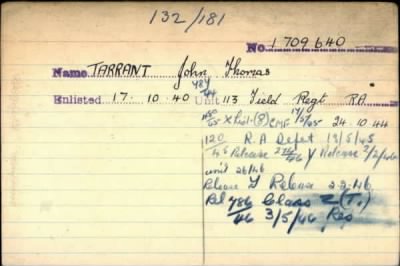 132/181
No. 1709640
Name TARRANT John Thomas
Enlisted 17. 10. 40 Unit 113 Field Regt R.A.
X List (8) CMF 24. 10. 44
120 R.A Depot 19/5/45
Release Y Release 2/2/46
unit
Release Y Release 2-2-46
Class Z (T.)
46 3/5/46 Res